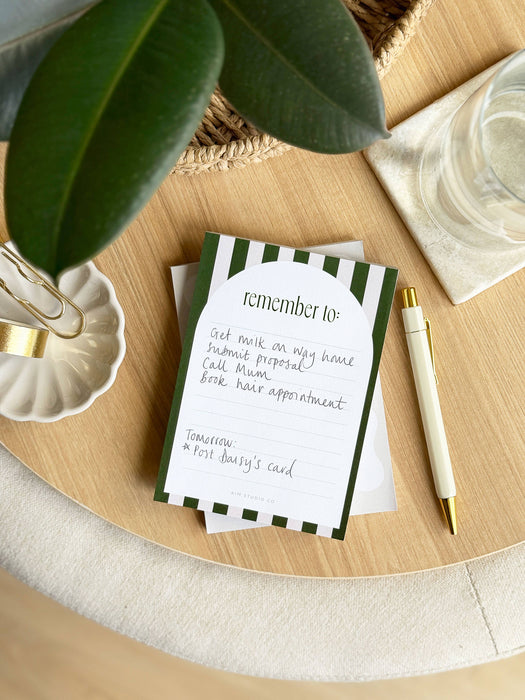 remember to:
Get milk on way home
Submit proposal
Call Mum
Book hair appointment
Tomorrow:
* Post Daisy's card
AIM STUDIO CO